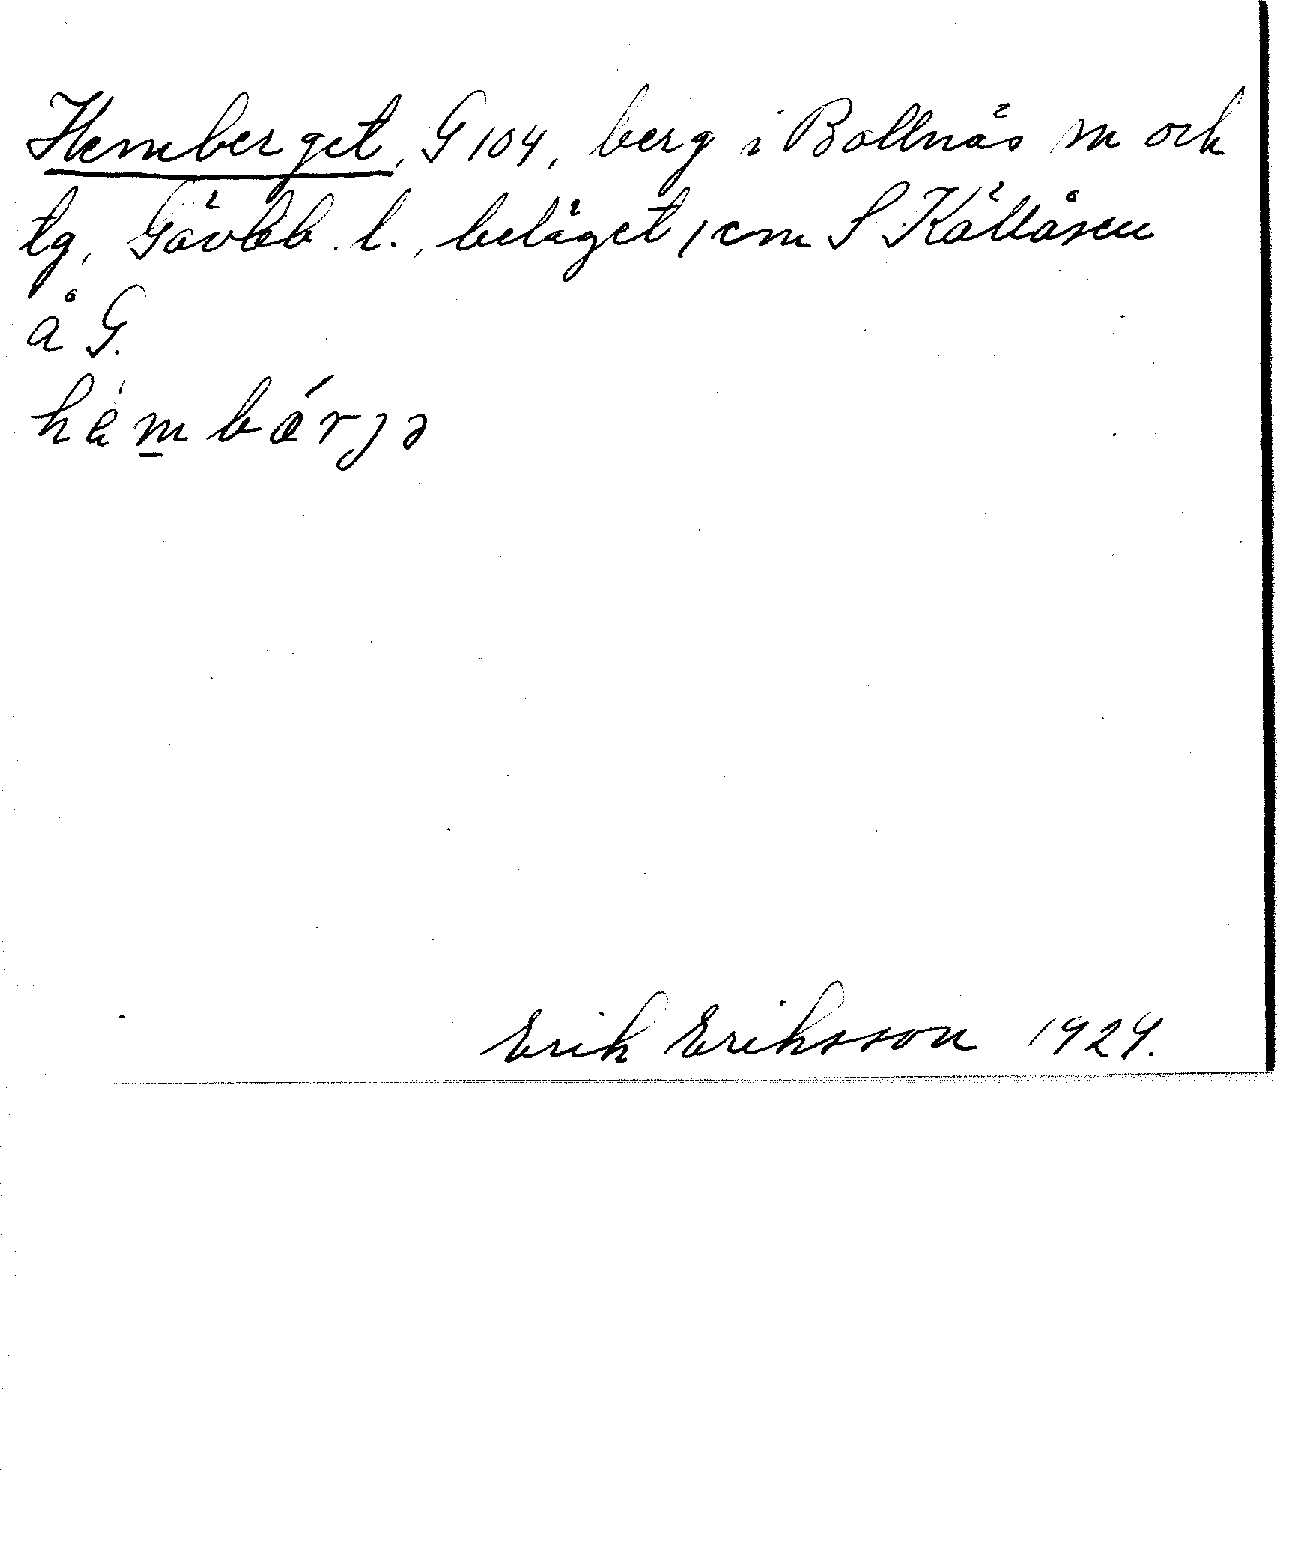 Hemberget, G 104, berg i Bollnäs sn och
tg, Gävleb. l., beläget 1 cm S Källåsen
å G.
hèm̲bǽrjə
Erik Eriksson 1929.